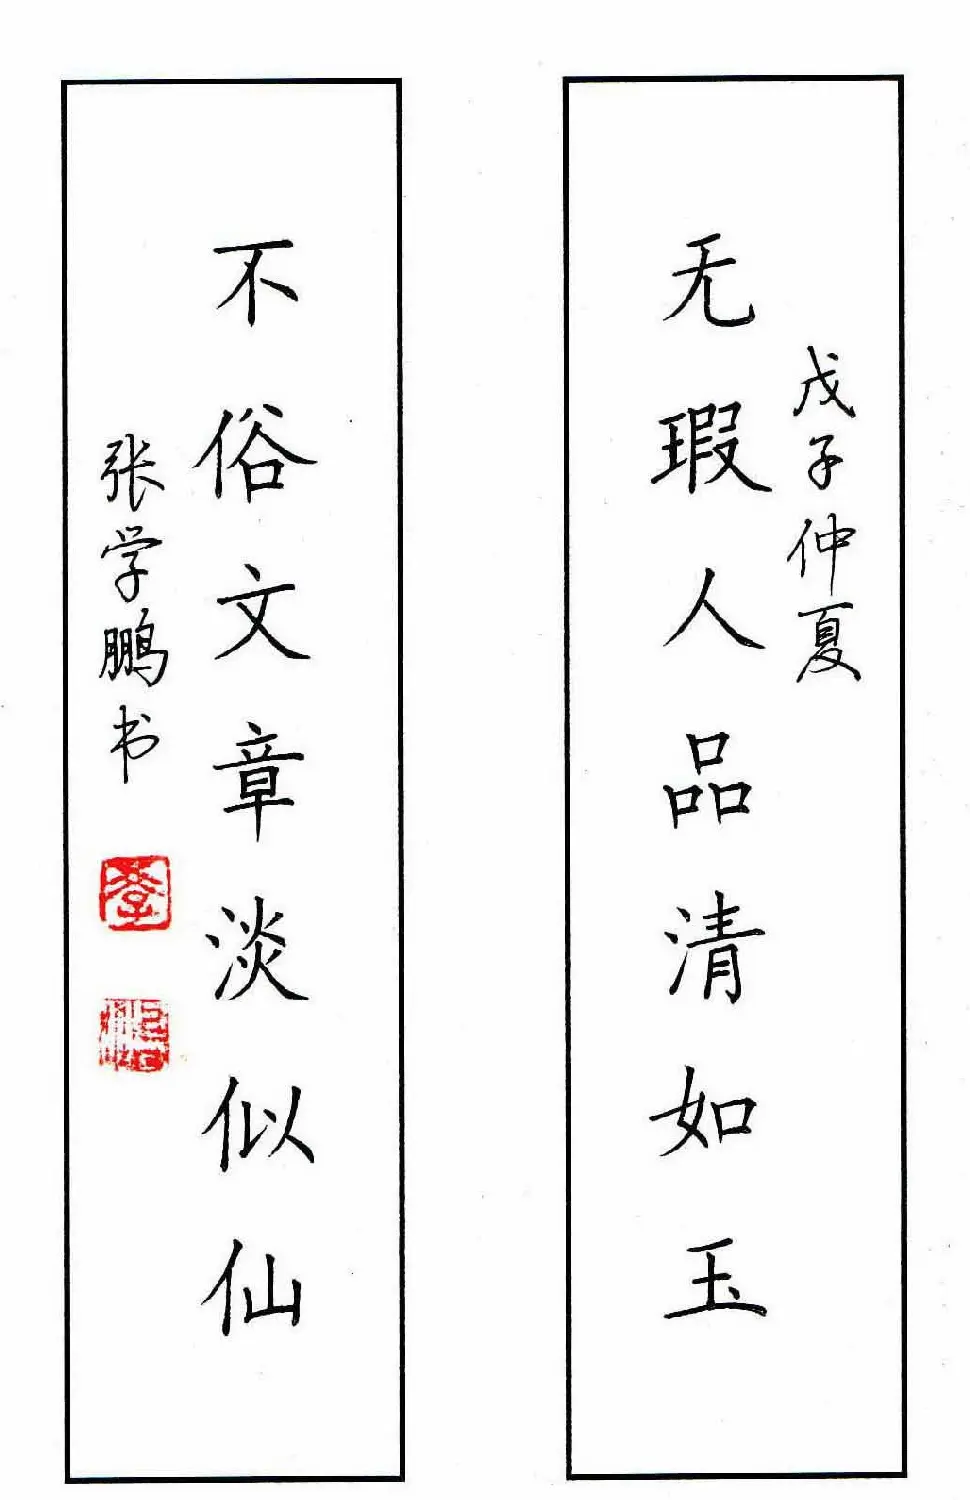 戊子仲夏
无瑕人品清如玉
不俗文章淡似仙
张学鹏书